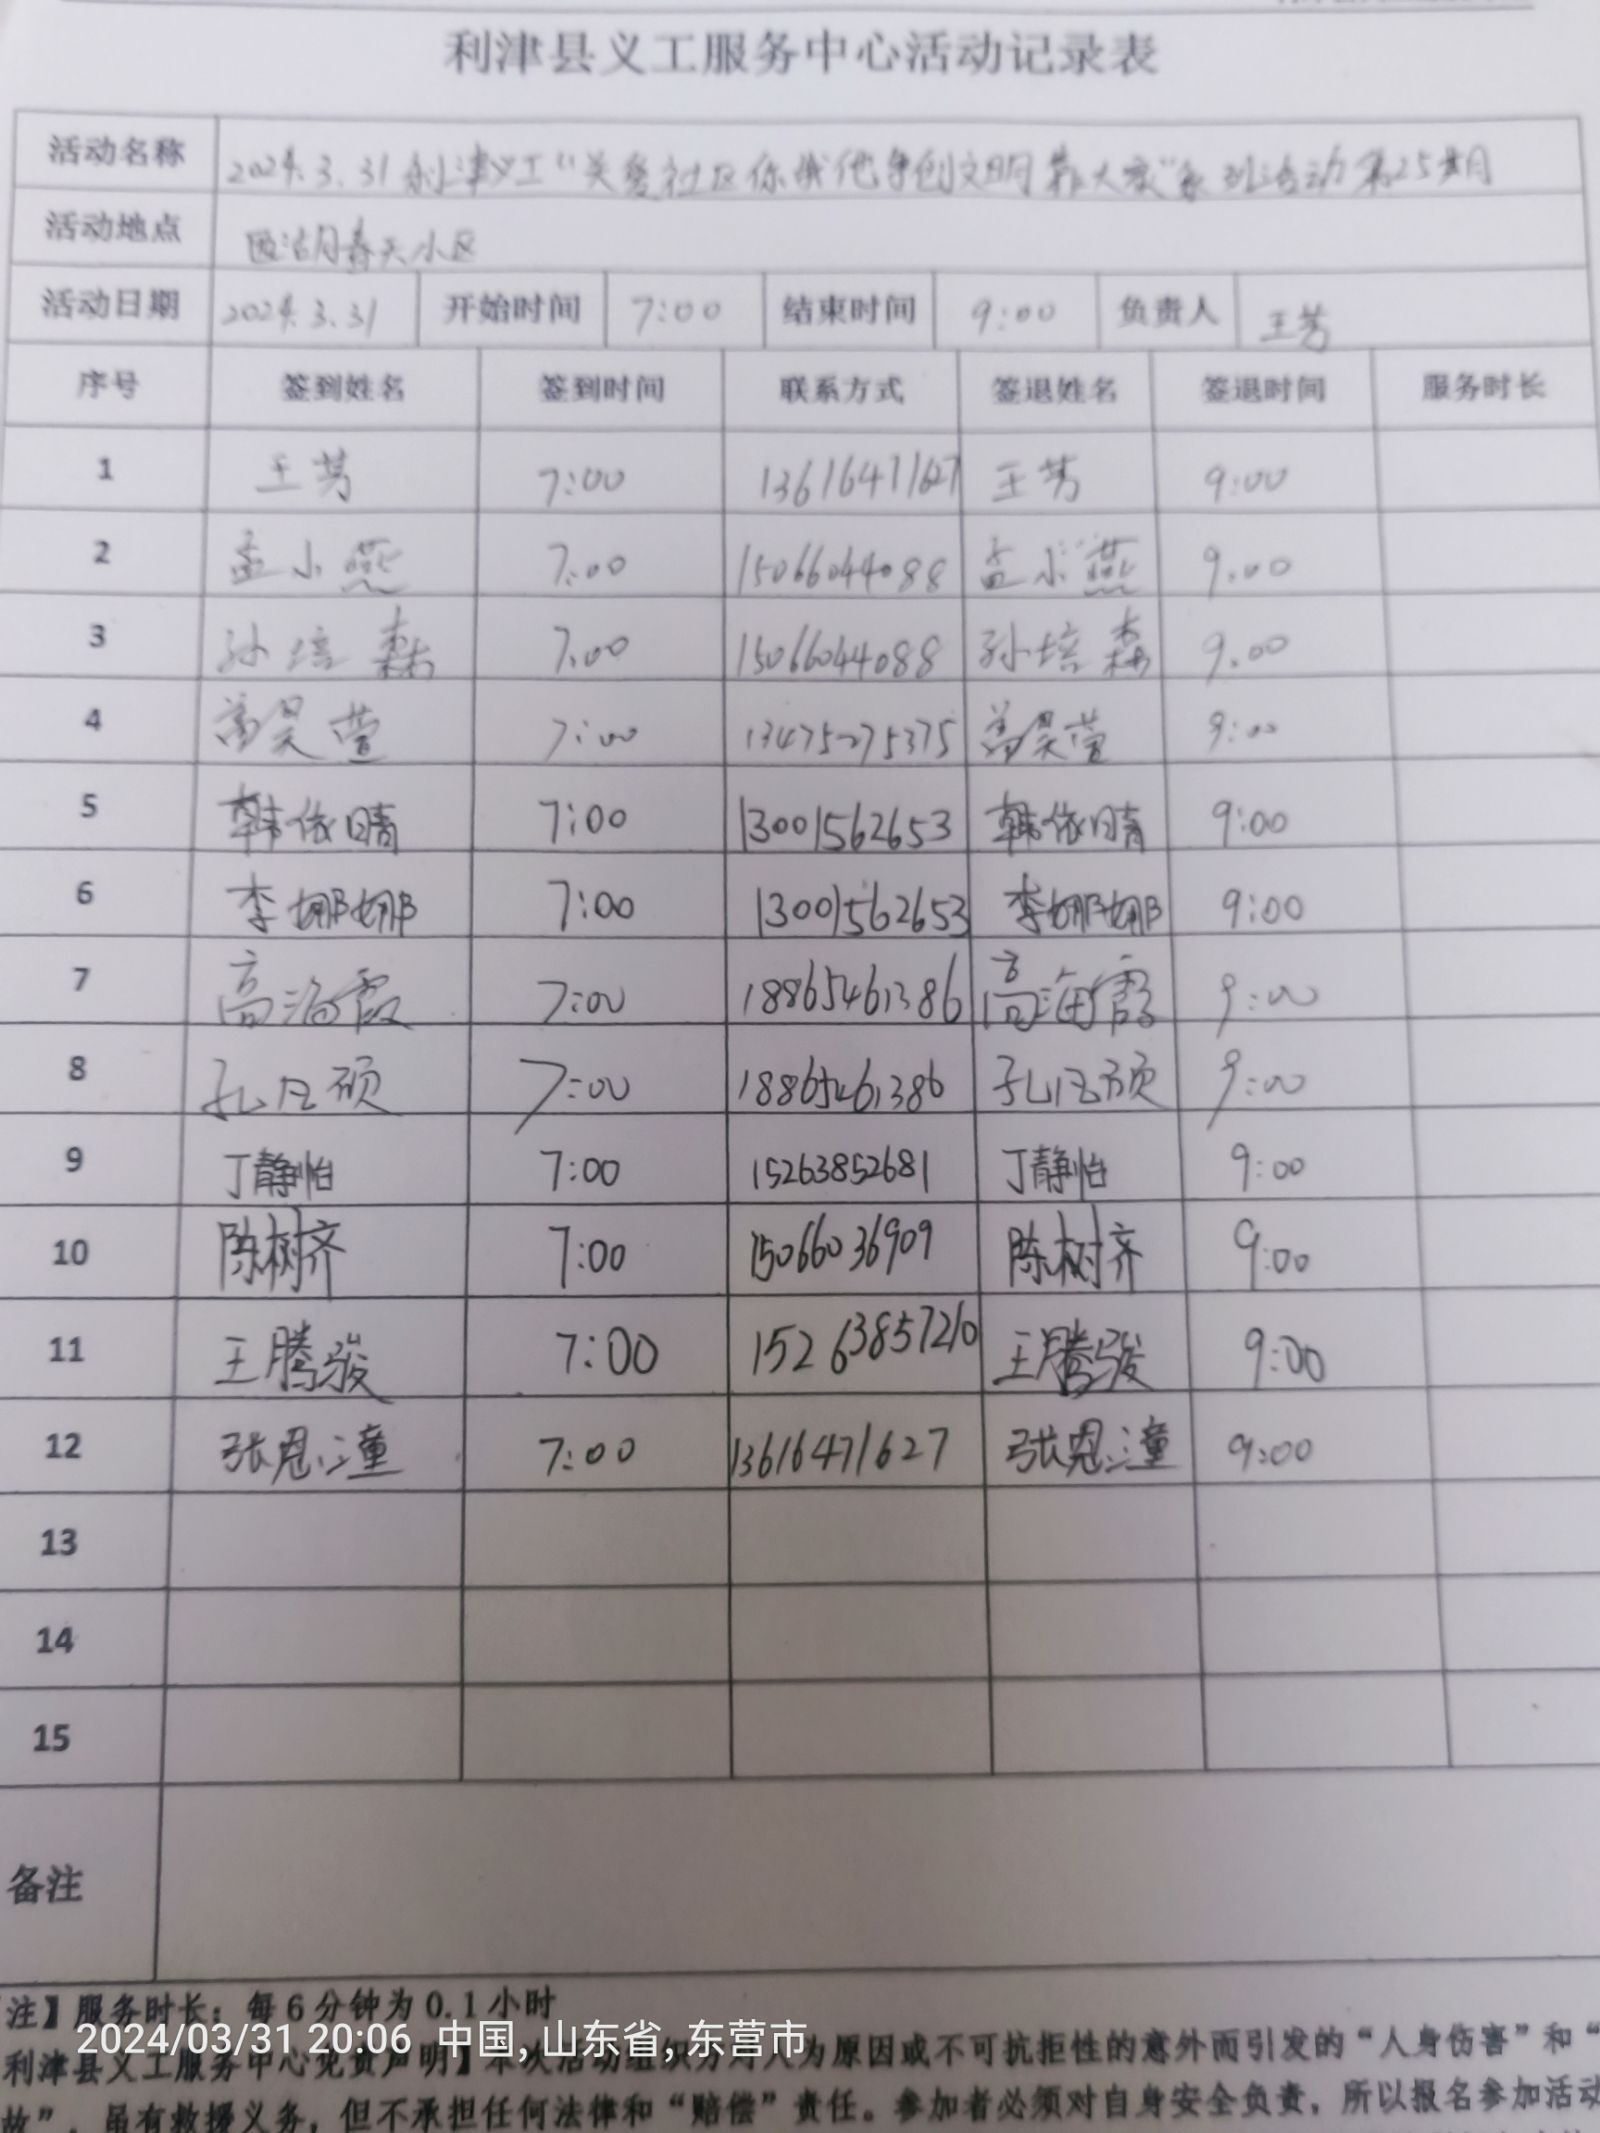 利津县义工服务中心活动记录表
活动名称 2024.3.31利津义工“关爱社区你我他争创文明靠大家”系列活动第25期
活动地点 西湖春天小区
活动日期 2024.3.31 开始时间 7:00 结束时间 9:00 负责人 王芳
序号 签到姓名 签到时间 联系方式 签退姓名 签退时间 服务时长
1 王芳 7:00 13616471627 王芳 9:00
2 孟小燕 7:00 15066044088 孟小燕 9:00
3 孙培森 7:00 15066044088 孙培森 9:00
4 高昊萱 7:00 13475275375 高昊萱 9:00
5 韩依晴 7:00 13001562653 韩依晴 9:00
6 李娜娜 7:00 13001562653 李娜娜 9:00
7 高海霞 7:00 18865461386 高海霞 9:00
8 孔凡硕 7:00 18865461386 孔凡硕 9:00
9 丁静怡 7:00 15263852681 丁静怡 9:00
10 陈树齐 7:00 15066036909 陈树齐 9:00
11 王腾骏 7:00 15263857210 王腾骏 9:00
12 张恩潼 7:00 13616471627 张恩潼 9:00
13
14
15
备注
注】服务时长：每6分钟为0.1小时
2024/03/31 20:06 中国, 山东省, 东营市
利津县义工服务中心免责声明】本次活动组织方对人为原因或不可抗拒性的意外而引发的“人身伤害”和“
故”，虽有救援义务，但不承担任何法律和“赔偿”责任。参加者必须对自身安全负责，所以报名参加活动